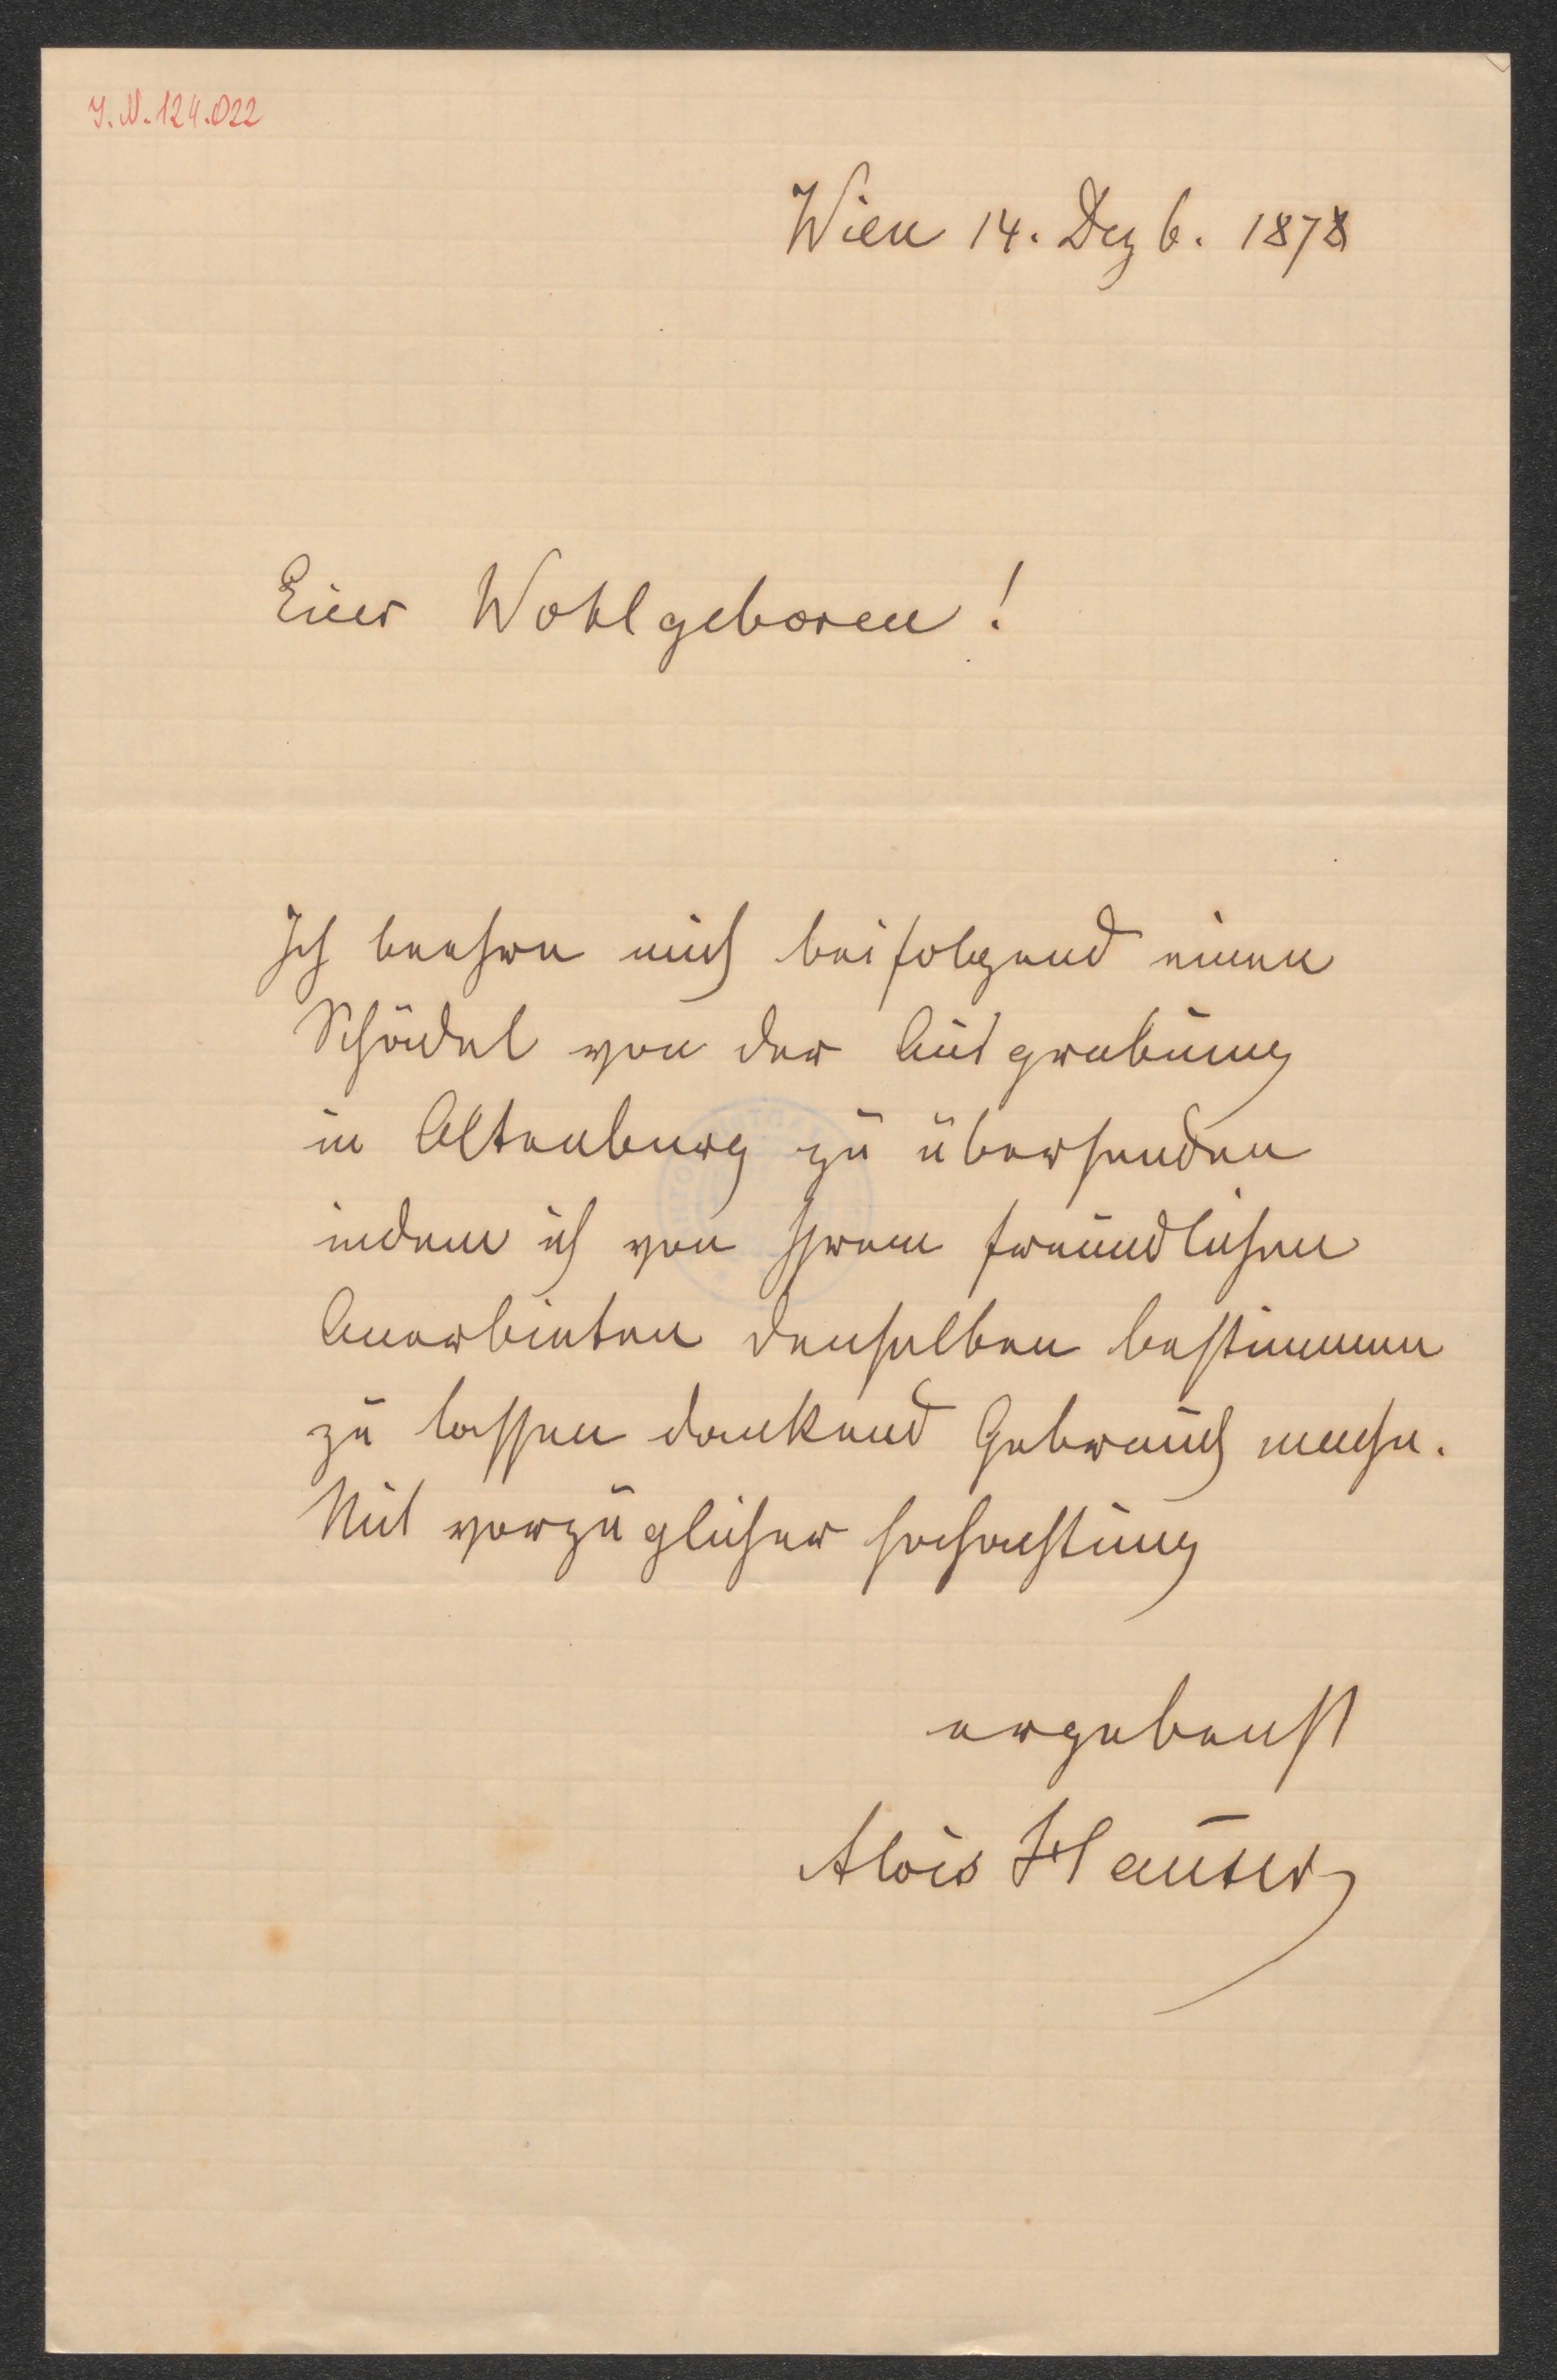 I.N. 124.022
Wien 14. Dezb. 1878
Euer Wohlgeboren!
Ich beehre mich beifolgend einen
Schädel von der Ausgrabung
in Altenburg zu übersenden
indem ich von Ihrem freundlichen
Anerbieten denselben bestimmen
zu lassen dankend Gebrauch mache.
Mit vorzüglicher Hochachtung
ergebenst
Alois Hauser